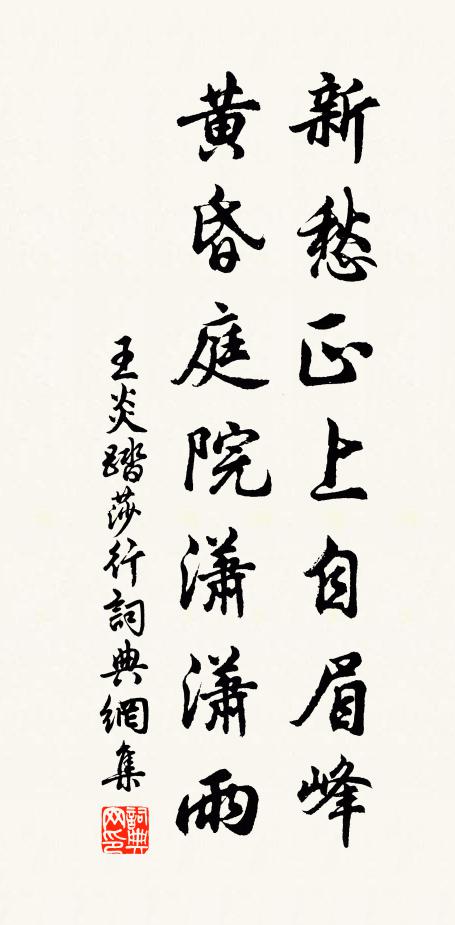 新愁正上自眉峰
黃昏庭院瀟瀟雨
王炎踏莎行詞典網集
詞典網印